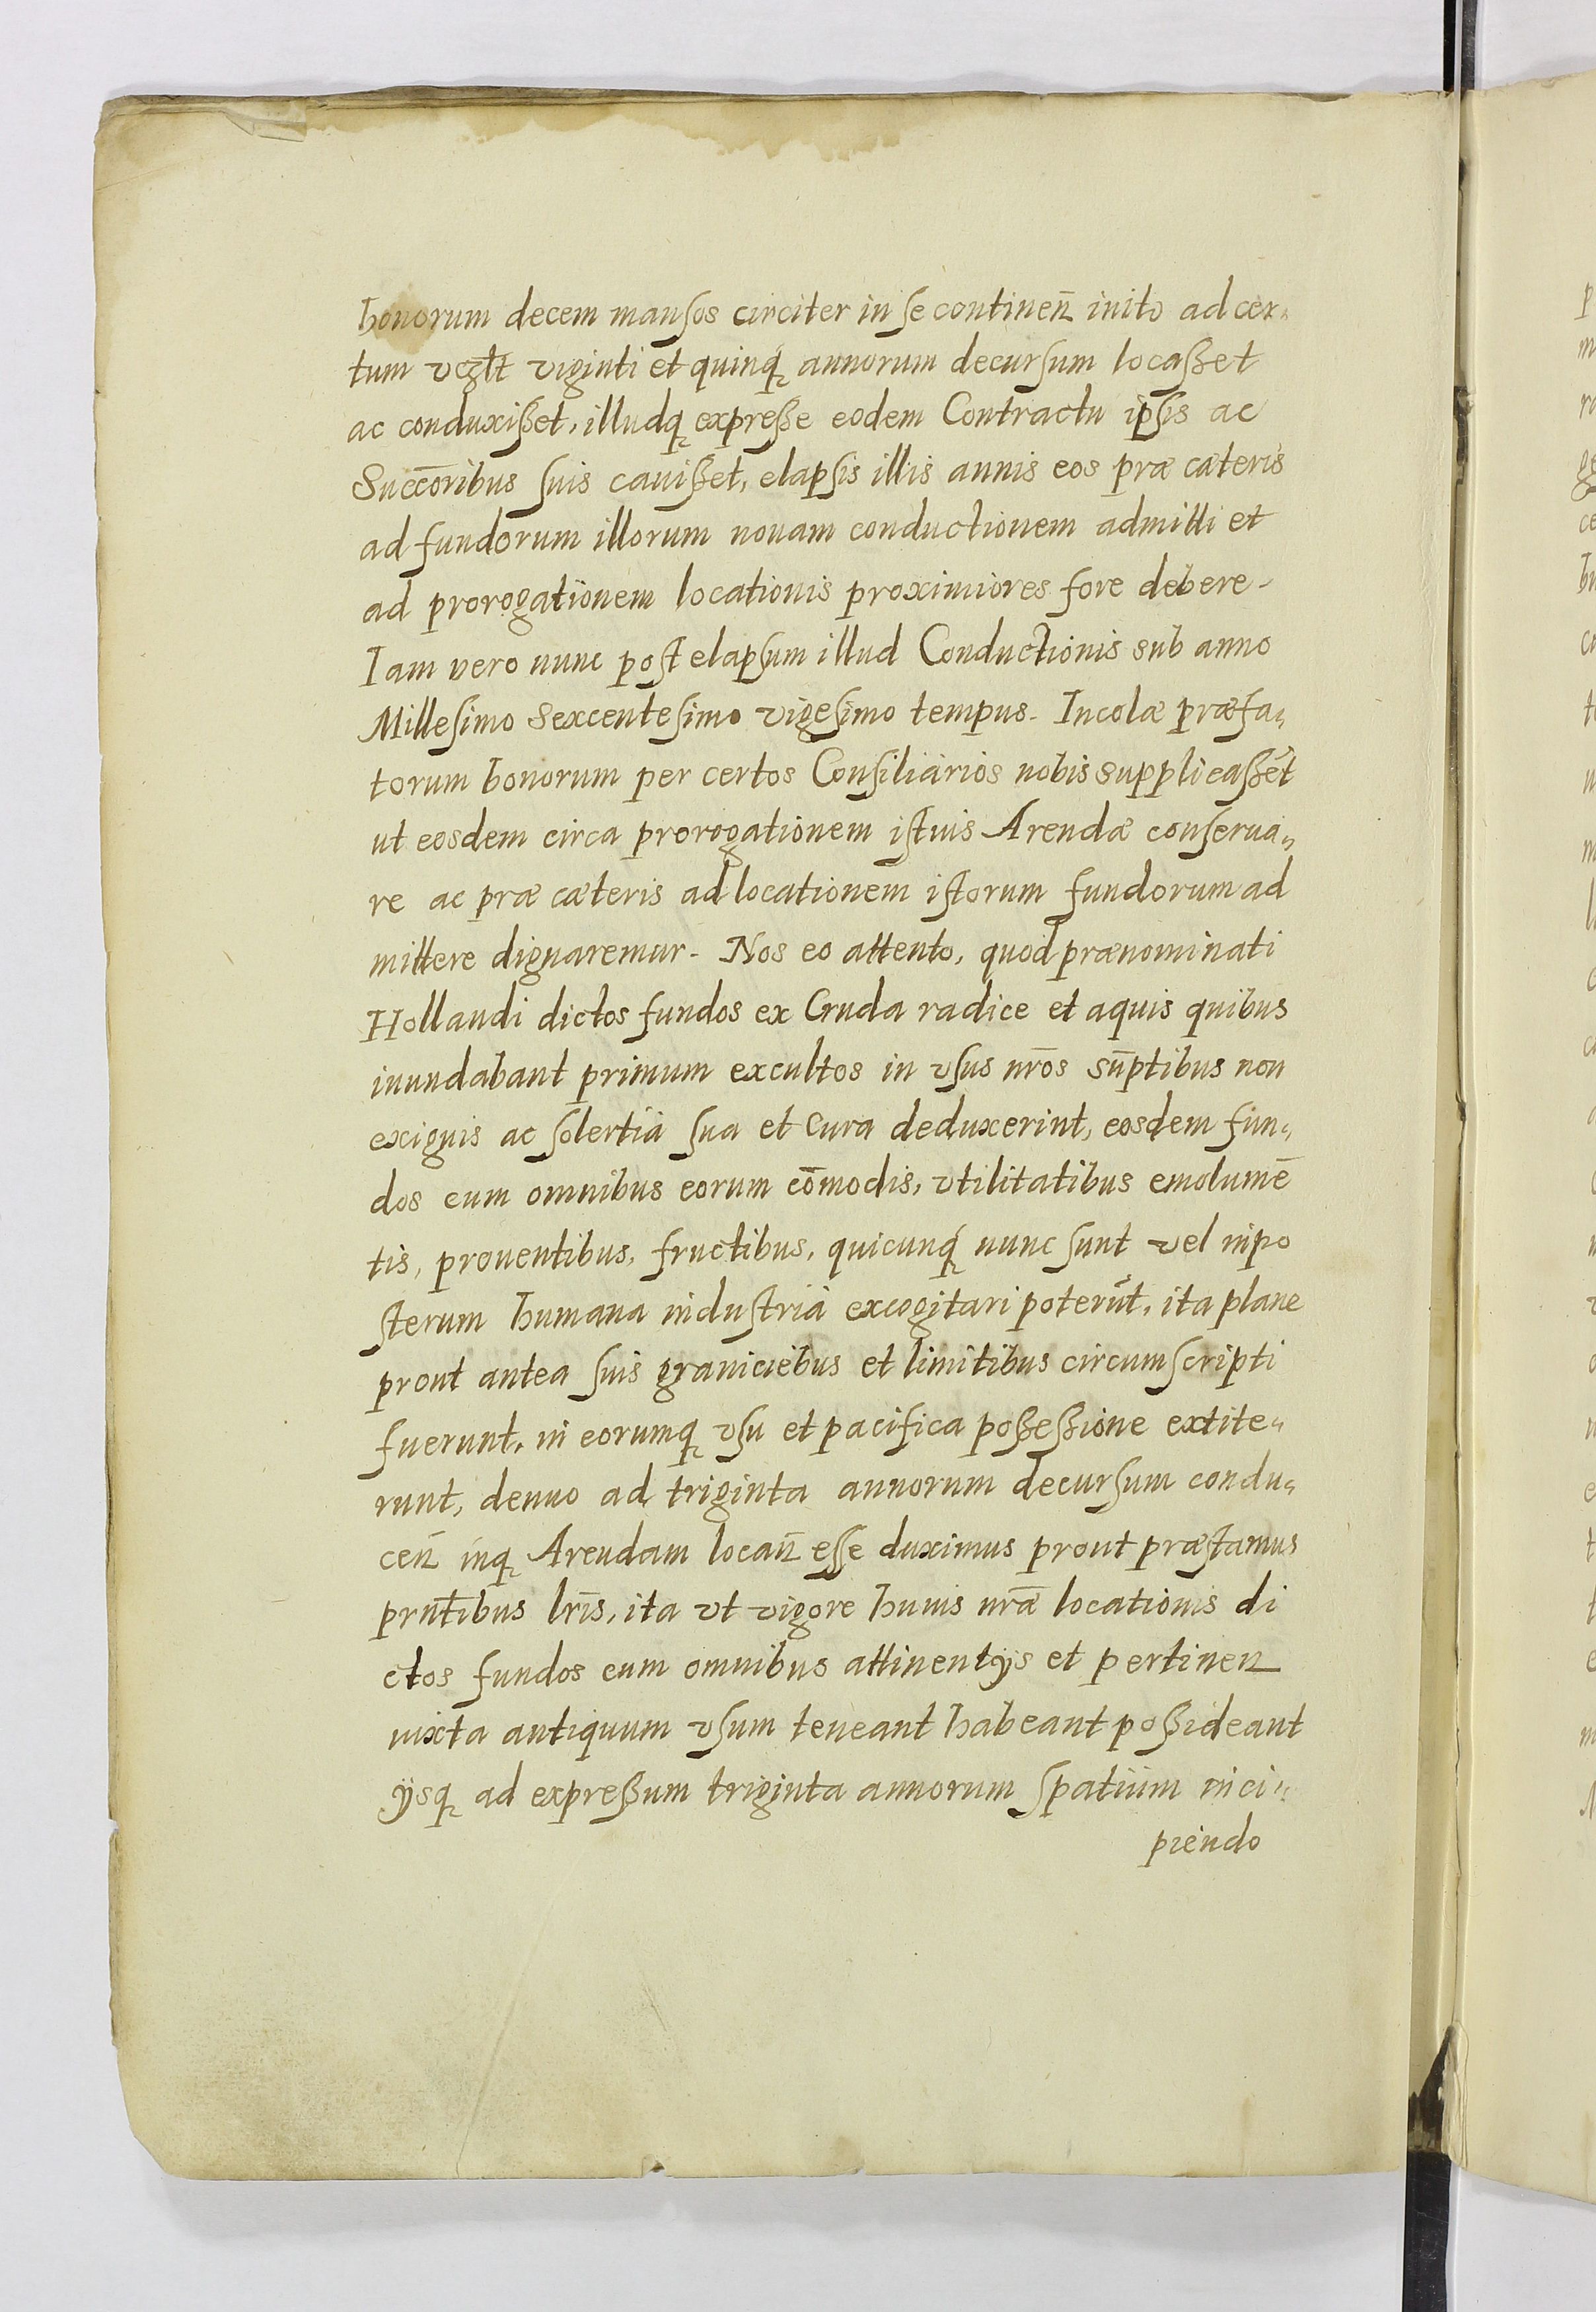 bonorum decem mansos circiter in se continen̄ inito ad cer„
tum vcꝫłt viginti et quinqꝫ́ annorum decursum locaßet
ac conduxißet, illudqꝫ expreße eodem Contractu ipsis ac
Succōribus suis cavißet, elapsis illis annis eos præ cæteris
ad fundorum illorum novam conductionem admitti et
ad prorogationem locationis proximiores fore debere.
Iam vero nunc post elapsum illud Conductionis sub anno
Millesimo Sexcentesimo vigesimo tempus. Incolæ præfa„
torum bonorum per certos Consiliarios nobis supplicaßēt
ut eosdem circa prorogationem istius Arendæ conserua„
re ac præ cæteris ad locationem istorum fundorum ad
mittere dignaremur. Nos eo attento, quod prænominati
Hollandi dictos fundos ex Cruda radice et aquis quibus
inundabant primum excultos in vsus nr̄os sūptibus non
exiguis ac solertia sua et Cura deduxerint, eosdem fun„
dos cum omnibus eorum cōmodis, vtilitatibus emolumē
tis, prouentibus, fructibus, quicunqꝫ́ nunc sunt vel inpo
sterum humana industria excogitari poterūt, ita plane
prout antea suis graniciebus et limitibus circumscripti
fuerunt, in eorumqꝫ vsu et pacifica poßeßione extite„
runt, denuo ad triginta annorum decursum condu„
cen̄ inqꝫ Arendam locan̄ esse duximus prout præstamus
prn̄tibus lr̄is, ita vt vigore huius nr̄æ locationis di
ctos fundos cum omnibus attinentijs et pertinen̄
iuxta antiquum vsum teneant habeant poßideant
ijsqꝫ ad expreßum triginta annorum spatium inci„
piendo